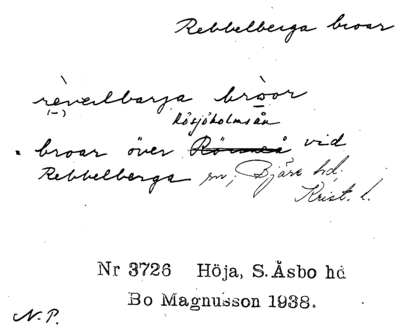 Rebbelberga broar
rèvεlbarja bròor
(-)
Rösjöholmsån
. broar över Rönneå vid
Rebbelberga sn, Bjäre hd.
Krist. l.
Nr 3726 Höja, S.Åsbo hd
Bo Magnusson 1938.
N.P.